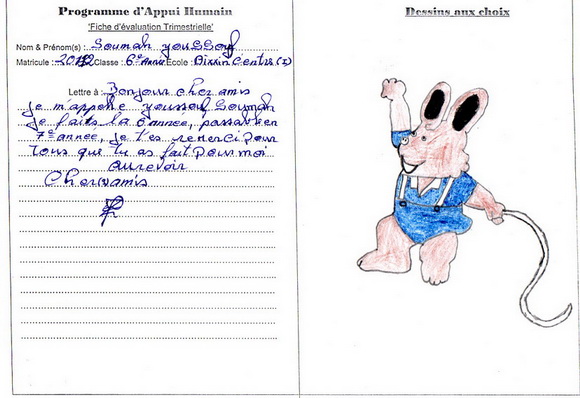 Programme d'Appui Humain
'Fiche d'évaluation Trimestrielle'
Nom & Prénom(s) : Soumah youssouf
Matricule : 2012 Classe : 6e Année Ecole : Dixinn Centre (I)
Lettre à : Bonjour cher amis
je m'appelle youssouf Soumah
je faits la 6année, passait en
7e année, je t'es remerci pour
tous que tu as fait pour moi
aurevoir
Cher amis
Dessins aux choix